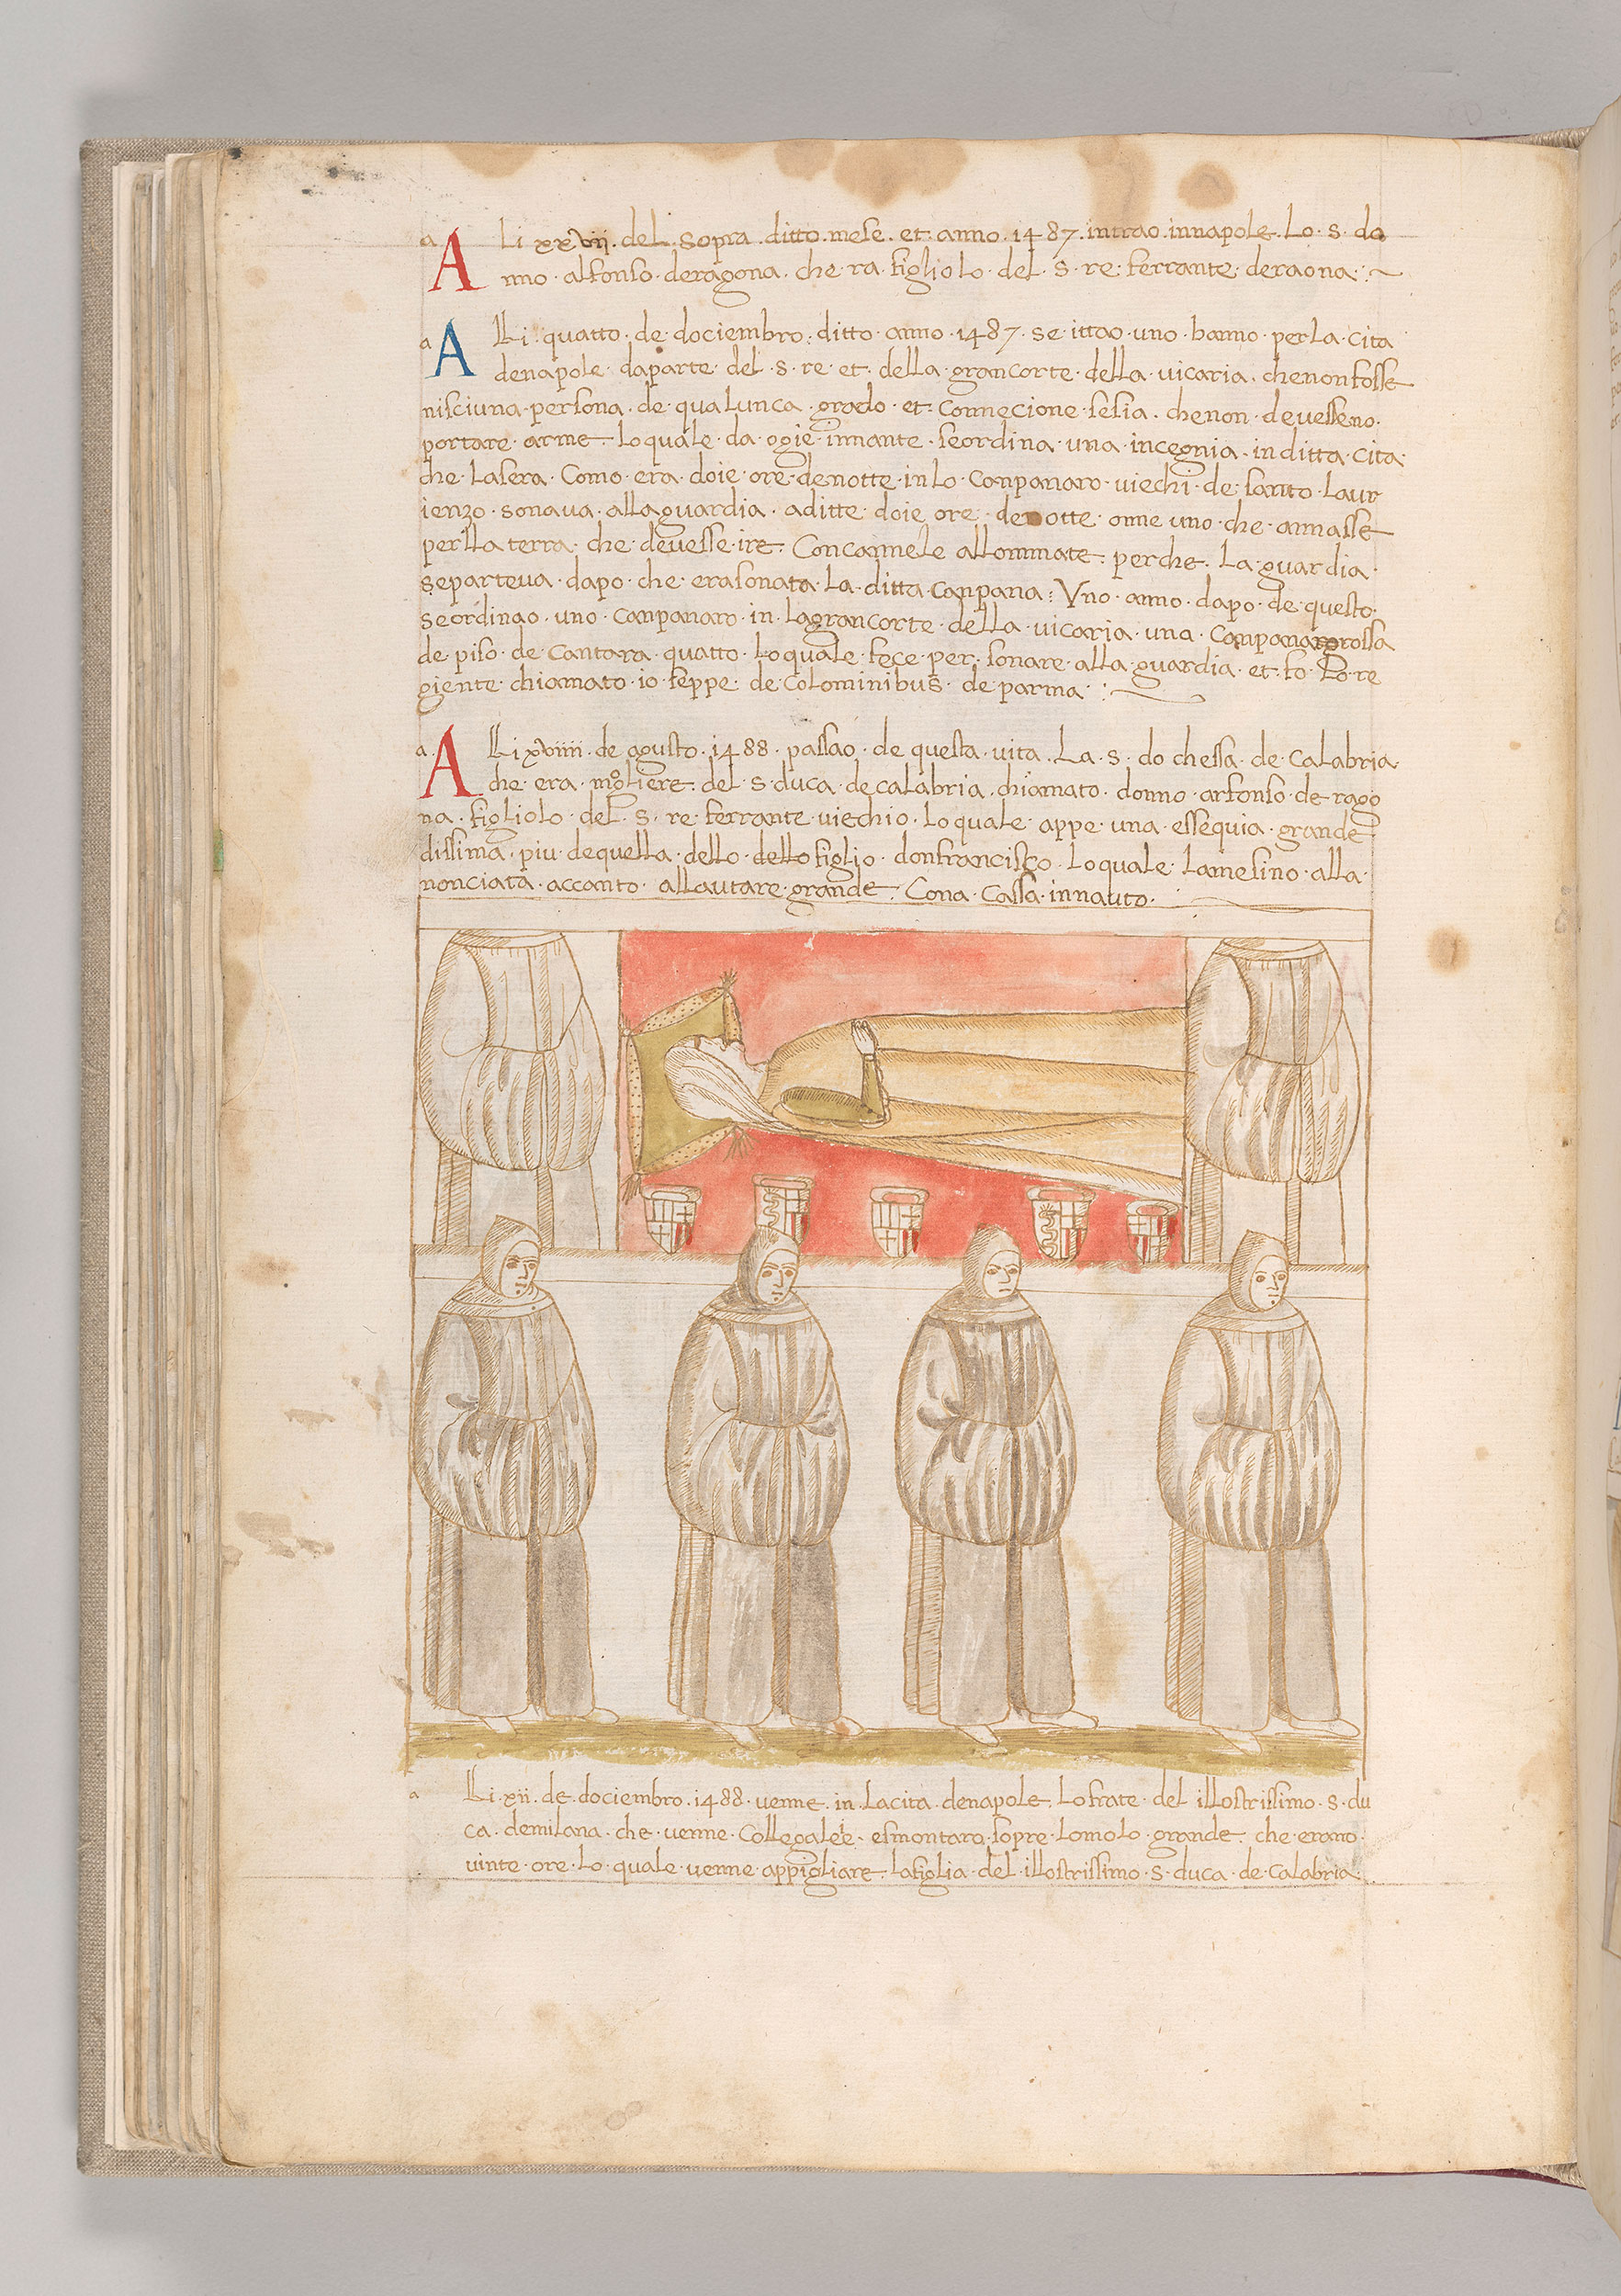 a A Li xxvii. del. sopra. ditto. mese. et. anno. 1487. intrao. innapole. Lo. s. do
nno. alfonso. deragona. che ra. figliolo. del. s. re: ferrante. deraona:~
a A lli. quatto. de. dociembro: ditto. anno. 1487. se ittao. uno. banno. perla. cita
denapole. daparte. del. s. re. et. della. grancorte. della. vicaria. chenonfosse
nisciuna. persona. de. qualunca. grado. et. connecione. sesia. chenon. devesseno.
portare. arme. loquale. da. ogie. innante. seordina. una. incegnia. inditta. cita.
che. lasera. Como. era. doie. ore. denotte. inlo. Conpanaro. viechi. de. santo. Laur
ienzo. sonava. allaguardia. aditte. doie. ore. denotte. onne uno. che. annasse
perlla terra. che. devesse. ire. Concannele allommate. perche. La. guardia.
separteva. dapo. che. erasonata. La. ditta. Canpana: Vno. anno. dapo. de. questo.
seordinao. uno. Canpanaro. in. lagrancorte. della. vicaria. una. Canpanagrossa
de piso. de. Cantara. quatto. loquale. fece. per. sonare. alla. guardia. et. fo. Lo. re
giente. chiamato. io. feppe. de. Colominibus. de parma. :~
a. A lli xviiii. de agusto. 1488. passao. de questa. vita. La. s. do chessa. de. Calabria.
che. era. mogliere. del. s. duca. decalabria. chiamato. donno. arfonso. de rago
na. figliolo. del. s. re. ferrante. viechio. loquale. appe. una. essequia. grande
dissima. piu. dequella. dello. dello figlio. donfrancisco. loquale. lamesino. alla.
nonciata. accanto. allautare. grande. Cona. Cassa. innauto.
a lli. xii. de. dociembro. 1488. venne. in. Lacita. denapole. Lofrate. del illostrissimo. s. du
ca. demilana. che. venne. Collegalee. esmontaro. sopre. lomolo. grande. che. erano.
vinte. ore. lo. quale. venne. appigliare. lafiglia. del. illostrissimo. s. duca. de. Calabria.